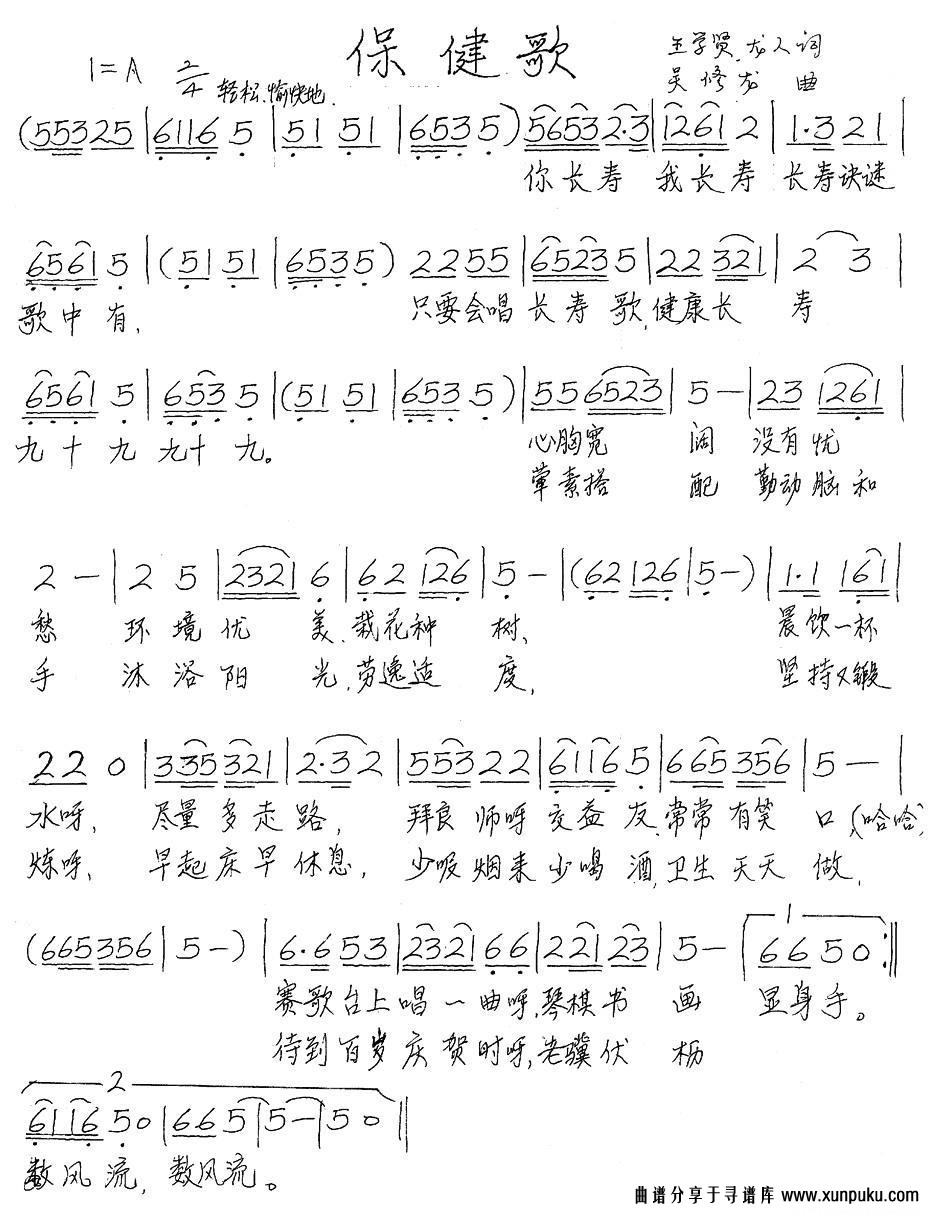 保健歌
1=A 2/4 轻松、愉快地
王学贤、龙人词
吴修龙 曲
(553235|6116 5|51 51|6535)|56532·3|1261 2|1·3 21|
你长寿 我长寿 长寿诀谜
6561 5|(51 51|6535)|2255|65235|22 321|2 3
歌中有, 只要会唱长寿歌,健康长 寿
6561 5|653 5|(51 51|653 5)|556523|5-|23 1261|
九十九 九十九。 心胸宽 阔 没有忧
荤素搭 配 勤动脑和
2-|2 5|2321 6|62 126|5-|(62 126|5-)|1·1 161|
愁 环境优 美、栽花种 树、 晨饮一杯
手 沐浴阳 光,劳逸适 度, 坚持又锻
22 0|335321|2·32|553 22|6116 5|665356|5-|
水呀, 尽量多走路, 拜良师呀交益友,常常有笑 口(哈哈)
炼呀、 早起床早休息, 少吸烟来少喝酒,卫生天天 做,
(665356|5-)|6·6 53|23·21 66|221 23|5-|1 66 50:||
赛歌台上唱一曲呀,琴棋书 画 显身手。
待到百岁庆贺时呀,老骥伏 枥
2
6116 50|665|5-|50||
数风流, 数风流。
曲谱分享于寻谱库 www.xunpuku.com